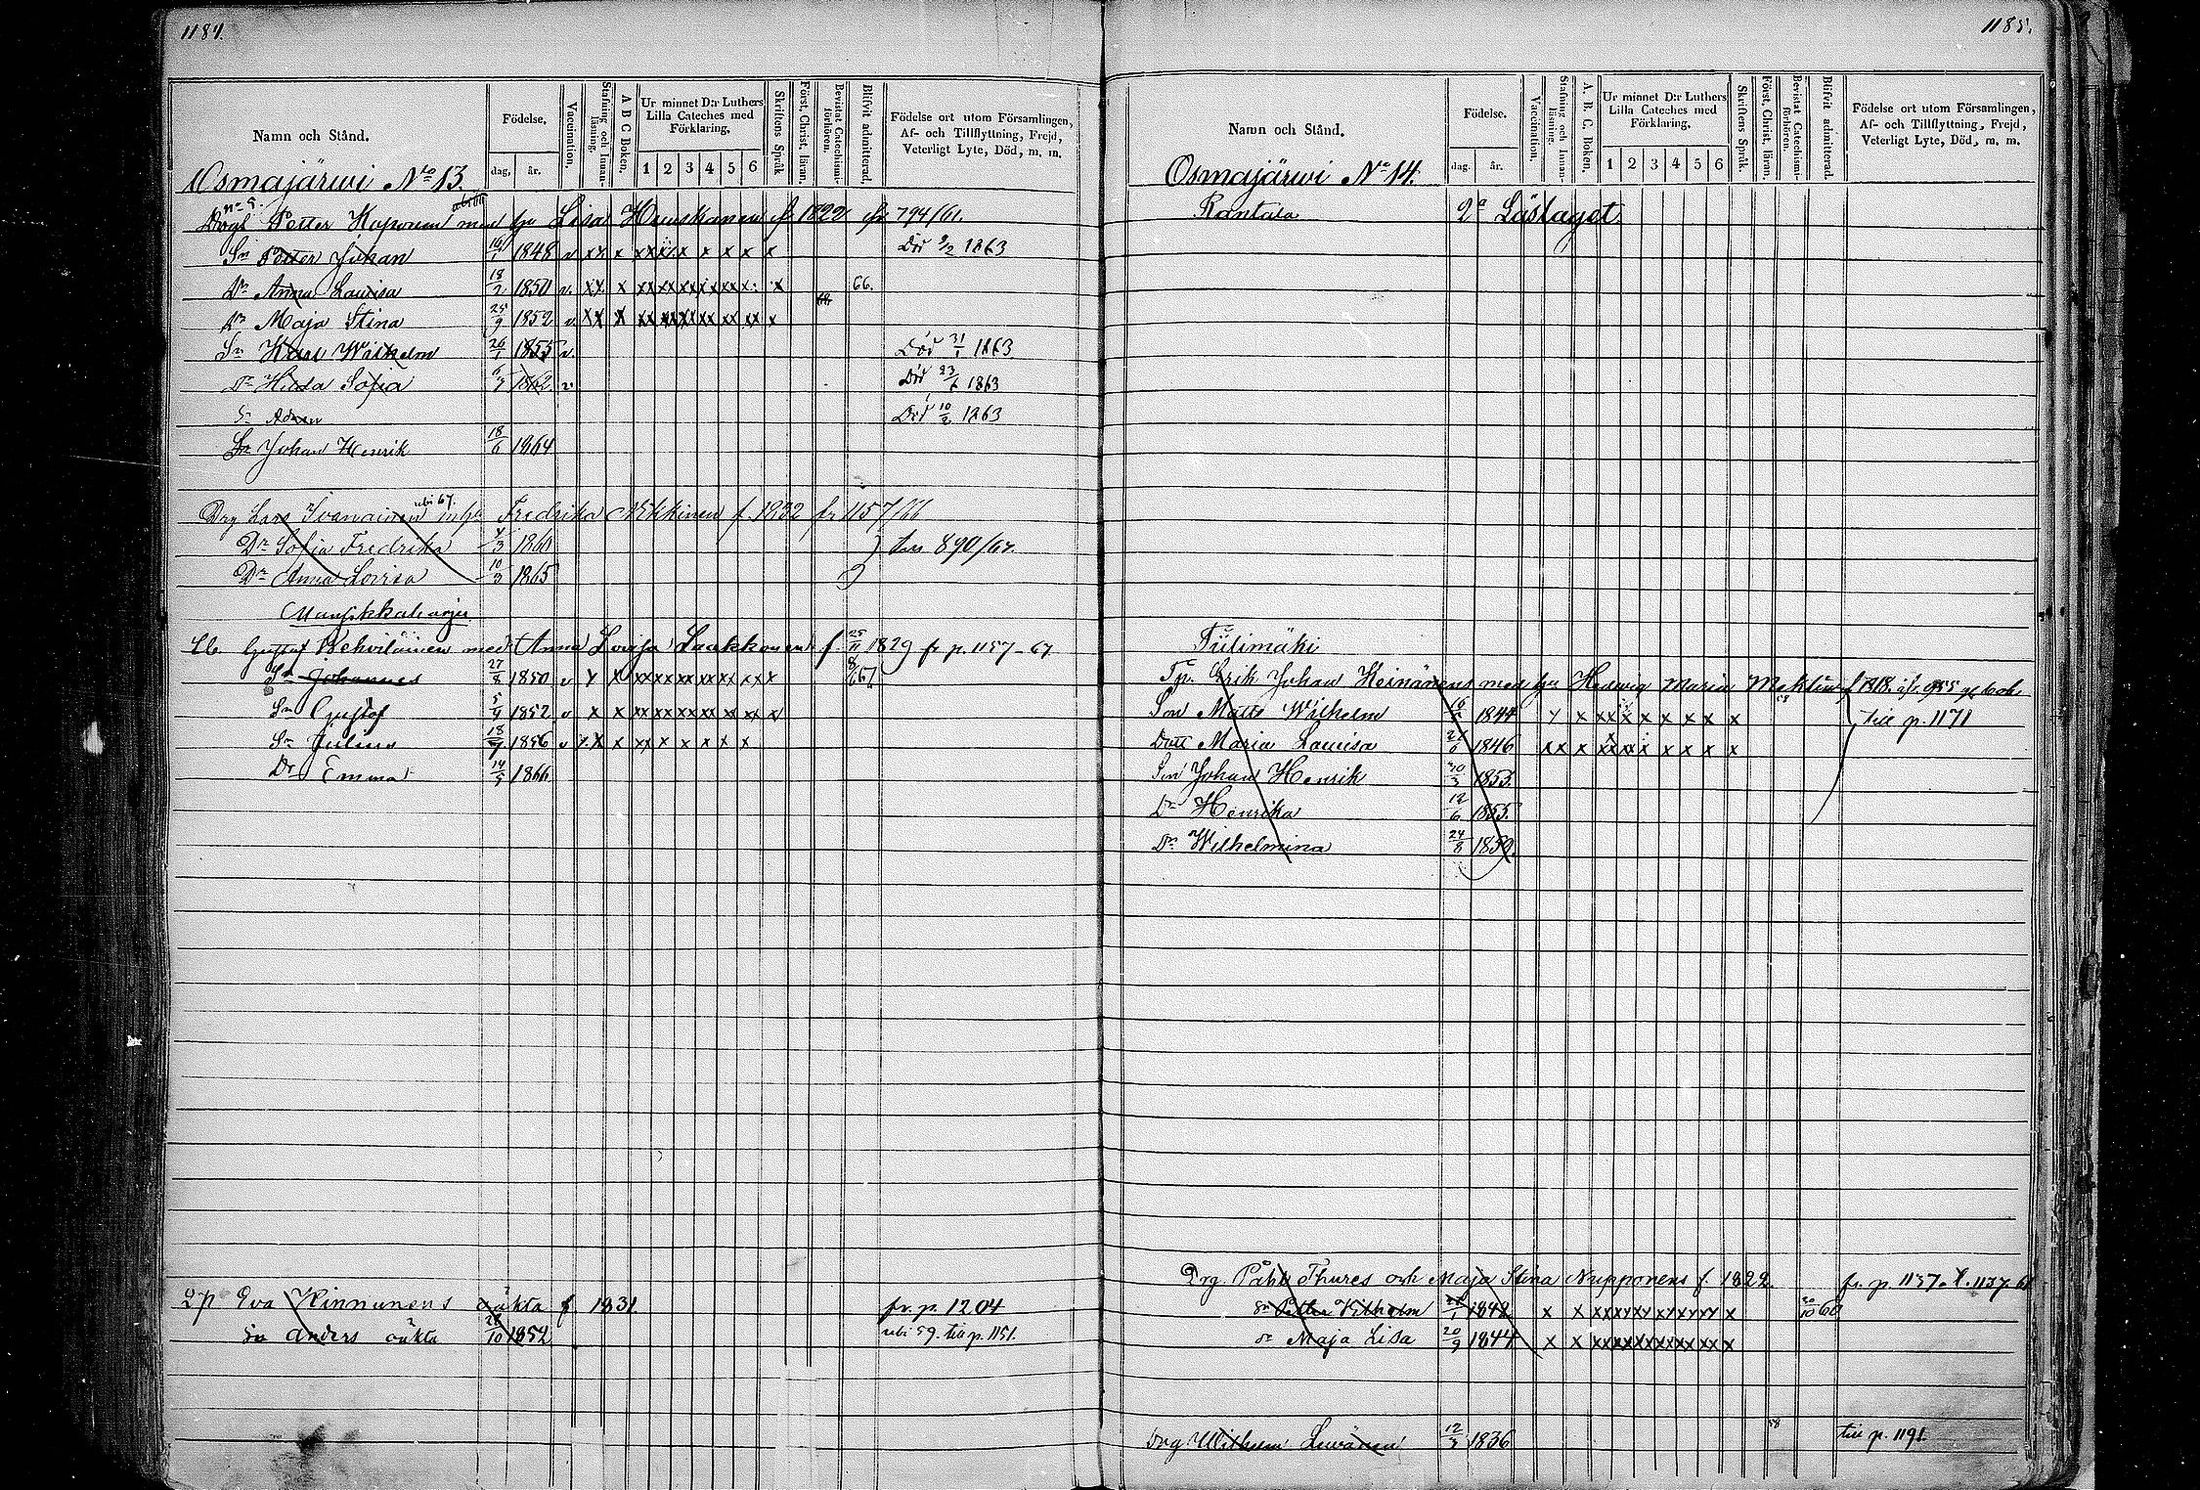 1184.
Namn och Stånd.
Födelse.
dag. år.
Vaccination.
Stafning och Innan-läsning.
A B C Boken.
Ur minnet D:r Luthers Lilla Cateches med Förklaring.
1 2 3 4 5 6
Skriftens Språk
Först. Christ. läran.
Bevistat Catechismi-förhören.
Blifvit admitterad.
Födelse ort utom Församlingen, Af- och Tillflyttning, Frejd, Veterligt Lyte, Död, m. m.
Osmajärwi No 13.
Petter med hu Lisa f. 1822 fr 794/61.
Sn Petter Johan 16/1 1848 v xx x x x x x x Död 9/2 1863
Dr Anna Lauisa 18/2 1850 v. xx x xx xx xx xx xx x x 66.
Dr Maja Stina 25/9 1852 v xx x xx xx xx xx xx xx x
Sn Karl Wilhelm 26/1 1855 v. Död 31/1 1863
Dr Sofia 6/3 1862 v. Död 23/6 1863
Sn Död 10/2 1863
Sn Johan Henrik 18/6 1864
Drg Lars Ivanainen m hu Fredrika f. 1832 fr 1157/66
Dr Sofia Fredrika 4/3 1860 890/67.
Dr Anna Lovisa 10/3 1865
Gustaf Kehviläinen med Anna Lovisa Laakkonen f. 25/11 1829 fr p. 1157-67
Sn Johannes 27/8 1850 v x x xx xx xx xx xx xx x 67
Sn Gustaf 5/9 1852 v x x xx xx xx xx xx xx x
Sn Julius 18/7 1856 v x x x xx x x x x x
Dr Emma 14/5 1866
Eva Kinnunens oäkta f. 1831 fr. p. 1204
Sn Anders oäkta 28/10 1852 ubi 59. till p. 1151.
1185.
Namn och Stånd.
Födelse.
dag. år.
Vaccination.
Stafning och Innan-läsning.
A. B. C. Boken.
Ur minnet D:r Luthers Lilla Cateches med Förklaring.
1 2 3 4 5 6
Skriftens Språk.
Först. Christ. läran.
Bevistat Catechismi-förhören.
Blifvit admitterad.
Födelse ort utom Församlingen, Af- och Tillflyttning, Frejd, Veterligt Lyte, Död, m. m.
Osmajärwi No 14.
Rantala 2a Läslaget
Tulimäki
Erik Johan Heinänens med hu Hedwig Maria f. 1818.
Son Matts Wilhelm 1844 x x xx x x x x x x till p. 1171
Dott Maria Lauisa 1846 xx x xx xx x x x x x
Son Johan Henrik 1853.
Dr Henrika 12/6 1855.
Dr Wilhelmina 24/8 1859.
Drg. Påhl Thures och Maja Stina Nupponens f. 1822 fr. p. 1137.
Sn Petter Vilhelm 1842 x x xx xx xx xx xx xx x 20/10 60
Dr Maja Lisa 20/9 1844 x x xx xx xx xx xx xx x
Drg Wilhelm 12/3 1836 58 till p. 1191.